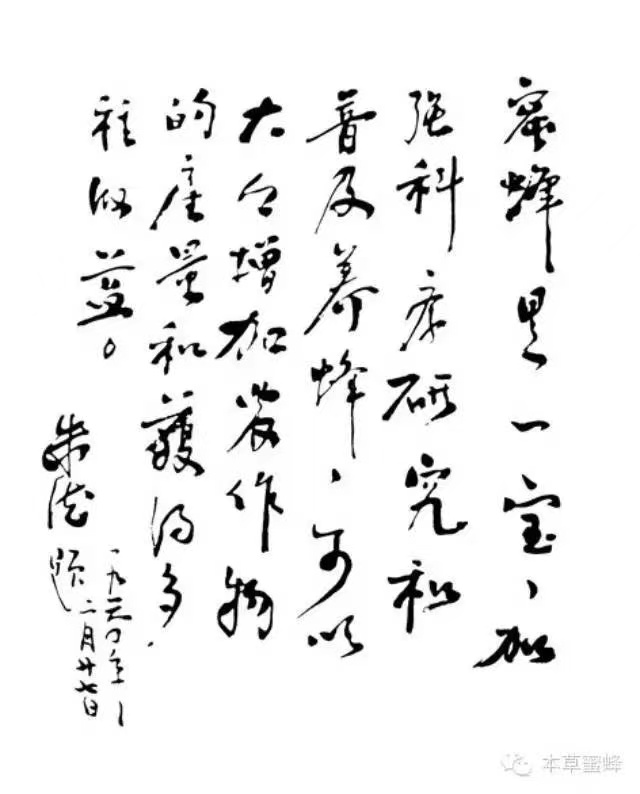 蜜蜂是一宝,加
强科学研究和
普及养蜂,可以
大大增加农作物
的产量和获得多
种收益。
朱德题
一九六〇年
二月廿七日
本草蜜蜂